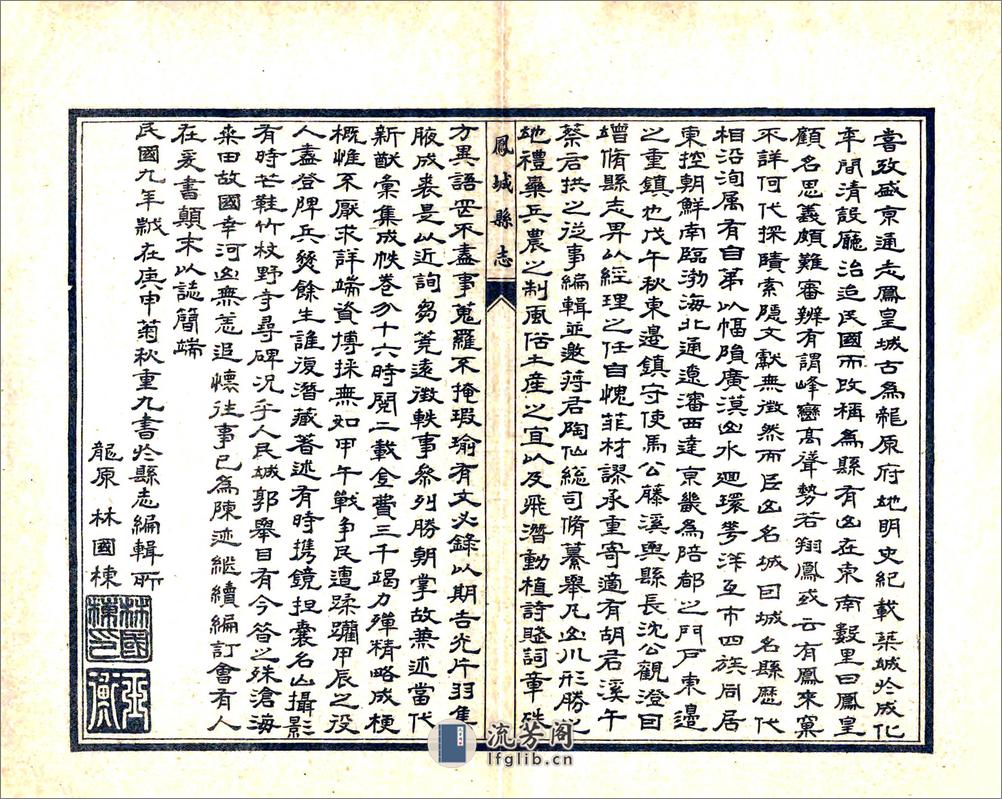 嘗攷盛京通志鳳皇城古爲龍原府地明史紀載築城於成化
年間清設廳治迨民國而改稱爲縣有山在東南數里曰鳳皇
顧名思義頗難審辨有謂峰巒高聳勢若翔鳳或云有鳳來窠
不詳何代探賾索隱文獻無徵然而臣山名城曰城名縣歷代
相沿洵属有自苐以幅隕廣漠山水迴環萼洋互市四族同居
東控朝鮮南臨渤海北通遼瀋西達京畿爲陪都之門戶東邊
之重鎮也戊午秋東邊鎮守使馬公藤溪與縣長沈公觀澄曰
增脩縣志畀以經理之任自愧菲材謬承重寄適有胡君溪午
蔡君拱之从事編輯並邀蔣君陶仙總司脩纂舉凡山川形勝之
地禮樂兵農之制風俗土産之宜以及飛潛動植詩賦詞章殊
鳳城縣志
方異語罔不盡事蒐羅不掩瑕瑜有文必錄以期吉光片羽集
腋成裘是以近詢芻蕘遠徵軼事參列勝朝掌故兼述當代
新猷彙集成帙卷分十六時閱二載金費三千竭力殫精略成梗
概惟不厭求詳端資博採無如甲午戰爭民遭蹂躪甲辰之役
人盡登陴兵燹餘生誰復潛藏著述有時携鏡担囊名山攝影
有時芒鞋竹杖野寺尋碑况乎人民城郭舉目有今昝之殊滄海
桑田故國幸河山無恙追懷往事已爲陳迹繼續編訂會有人
在爰書顛末以誌簡端
民國九年歲在庚申菊秋重九書於縣志編輯所
龍原 林國棟
林國棟印
流芳阁
lfglib.cn